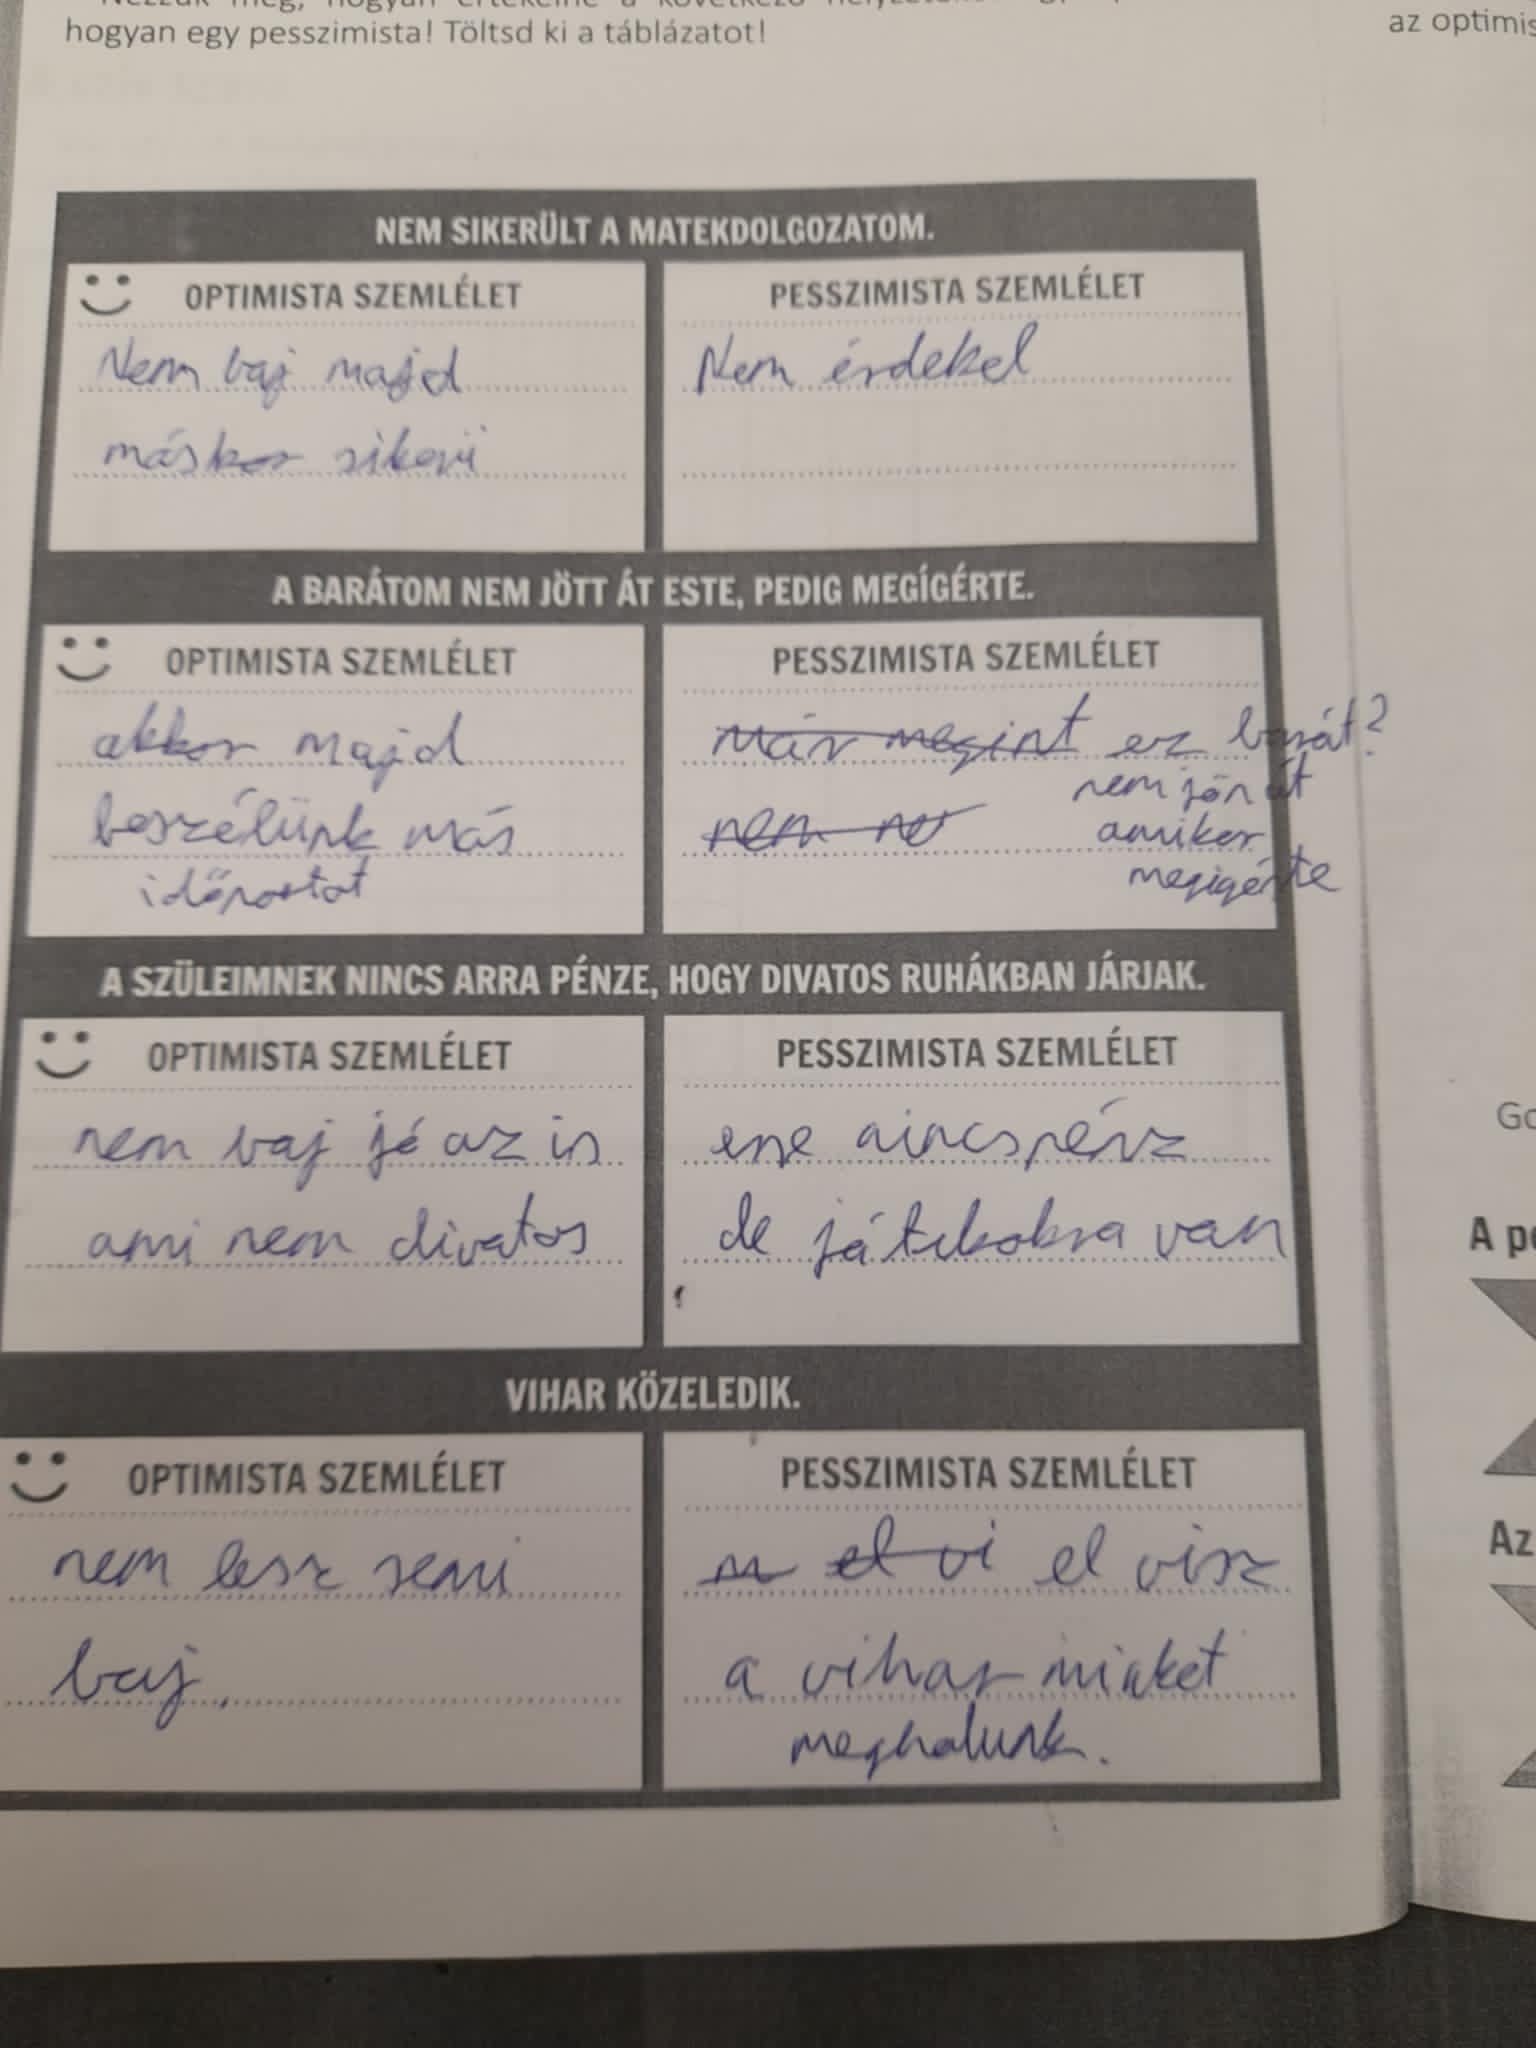 hogyan egy pesszimista! Töltsd ki a táblázatot!
az optimis
NEM SIKERÜLT A MATEKDOLGOZATOM.
OPTIMISTA SZEMLÉLET
Nem baj majd
máskor sikerü
PESSZIMISTA SZEMLÉLET
Nem érdekel
A BARÁTOM NEM JÖTT ÁT ESTE, PEDIG MEGÍGÉRTE.
OPTIMISTA SZEMLÉLET
akkor majd
beszélünk más
időpontot
PESSZIMISTA SZEMLÉLET
már megint ez barát?
nem jön át
nem
amikor
megigérte
A SZÜLEIMNEK NINCS ARRA PÉNZE, HOGY DIVATOS RUHÁKBAN JÁRJAK.
OPTIMISTA SZEMLÉLET
nem baj jó az is
ami nem divatos
PESSZIMISTA SZEMLÉLET
erre nincs pénz
de játékokra van
VIHAR KÖZELEDIK.
OPTIMISTA SZEMLÉLET
nem lesz semi
baj.
PESSZIMISTA SZEMLÉLET
el vi el visz
a vihar minket
meghalunk.
Go
A pe
Az